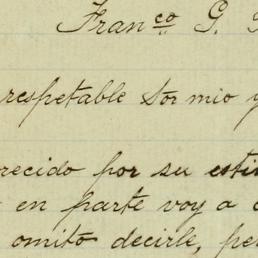 Franco G.
respetable Sor mio y
recido por su esti
en parte voy a
omito decirle, pe